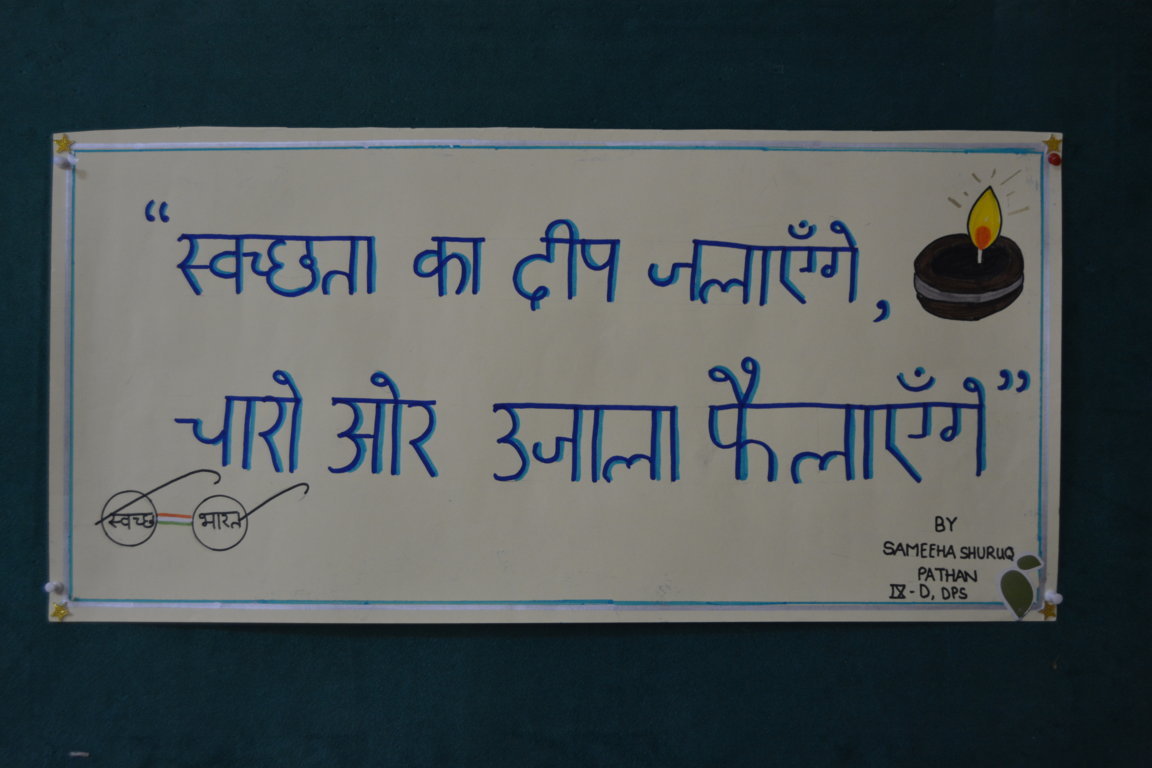 “स्वच्छता का दीप जलाएँगे,
चारो ओर उजाला फैलाएँगे”
स्वच्छ भारत
BY
SAMEEHA SHURUQ
PATHAN
IX - D, DPS